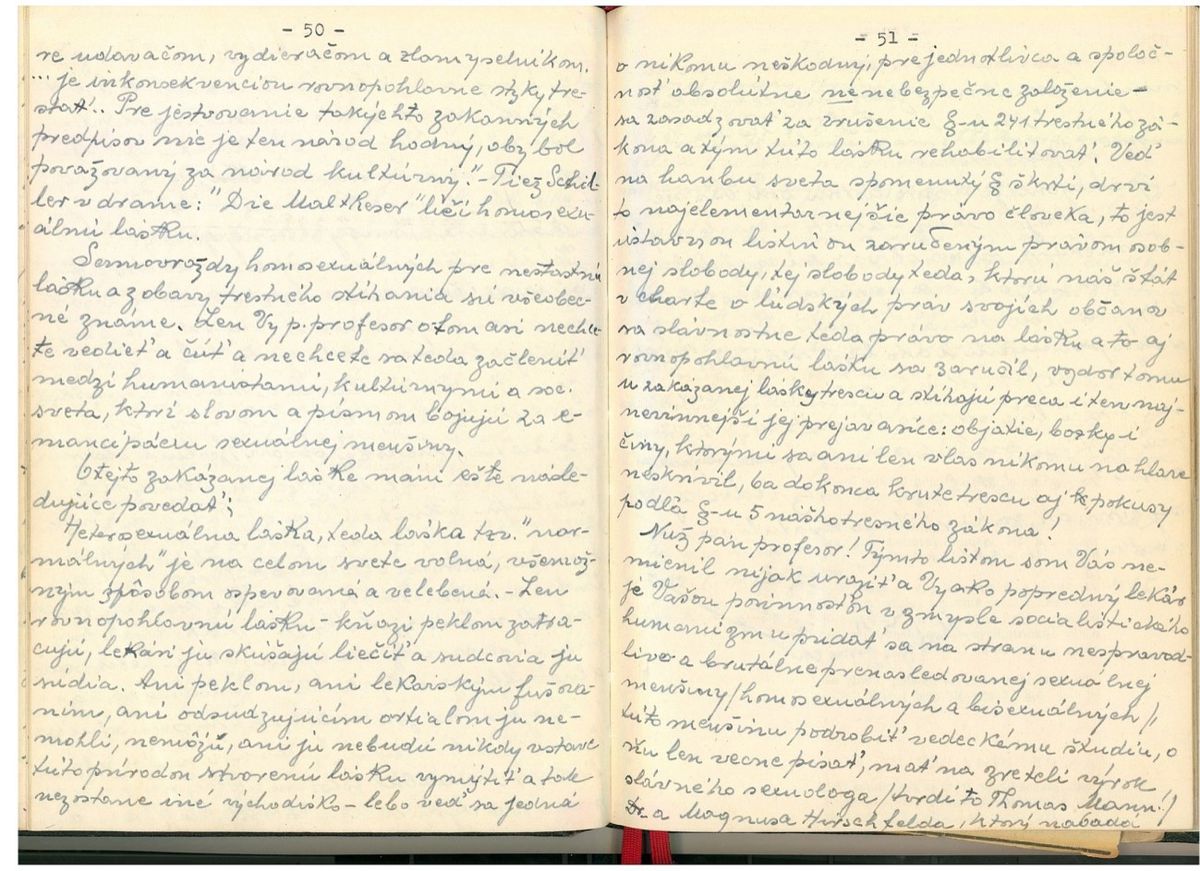 - 50 -
re udavačom, vydieračom a zlomyselníkom.
... je inkonsekvenciou rovnopohlavne styky tre-
stať.. Pre jestvovanie takýchto zákonných
predpisov nie je ten národ hodný, aby bol
považovaný za národ kultúrny." - Tiež Schil-
ler v dráme: "Die Maltheser" líči homosexu-
álnu lásku.
Samovraždy homosexuálnych pre nešťastnú
lásku a z obavy trestného stíhania sú všeobec-
né známe. Len Vy p. profesor o tom asi nechce-
te vedieť a čuť a nechcete sa teda začleniť
medzi humanistami, kultúrnymi a soc.
sveta, ktorí slovom a písmom bojujú za e-
mancipáciu sexuálnej menšiny.
O tejto zakázanej láske mám ešte násle-
dujúce povedať:
Heterosexuálna láska, teda láska tzv. "nor-
málnych" je na celom svete voľná, všemož-
ným spôsobom ospevovaná a velebená. - Len
rovnopohlavnú lásku - kňazi peklom zatra-
cujú, lekári ju skúšajú liečiť a sudcovia ju
súdia. Ani peklom, ani lekárskym fušova-
ním, ani odsudzujúcim ortialom ju ne-
mohli, nemôžu, ani ju nebudú nikdy vstave
túto prírodou stvorenú lásku vymýtiť a tak
nezostane iné východisko - lebo veď sa jedná
- 51 -
o nikomu neškodný, pre jednotlivca a spoloč-
nosť absolútne nenebezpečné založenie -
sa zasadzovať za zrušenie §-u 241 trestného zá-
kona a tým túto lásku rehabilitovať. Veď
na hanbu sveta spomenutý § škrtí, drví
to najelementarnejšie právo človeka, to jest
ústavnou listinou zaručeným právom osob-
nej slobody, tej slobody teda, ktorú náš štát
v charte o ľúdských práv svojich občanov
sa slávnostne teda právo na lásku a to aj
rovnopohlavnú lásku sa zaručil, vzdor tomu
u zakázanej lásky trescú a stíhajú preca i ten naj-
nevinnejší jej prejav a síce: objatie, bozky i
činy, ktorými sa ani len vlas nikomu na hlave
neskrivil, ba dokonca krute trescú aj pokusy
podľa §-u 5 nášho tresného zákona!
Nuž pán profesor! Týmto listom som Vás ne-
mienil nijak uraziť a Vy ako popredný lekár
je Vašou povinnosťou v zmysle socialistického
humanizmu pridať sa na stranu nespravod-
livo a brutálne prenasledovanej sexuálnej
menšiny /homosexuálnych a bisexuálnych/,
túto menšinu podrobiť vedeckému štúdiu, o
ňu len vecne písať, mať na zreteli výrok
slávneho sexuologa /tvrdí to Thomas Mann!/
Dr. a Magnusa Hirschfelda, ktorý nabáda